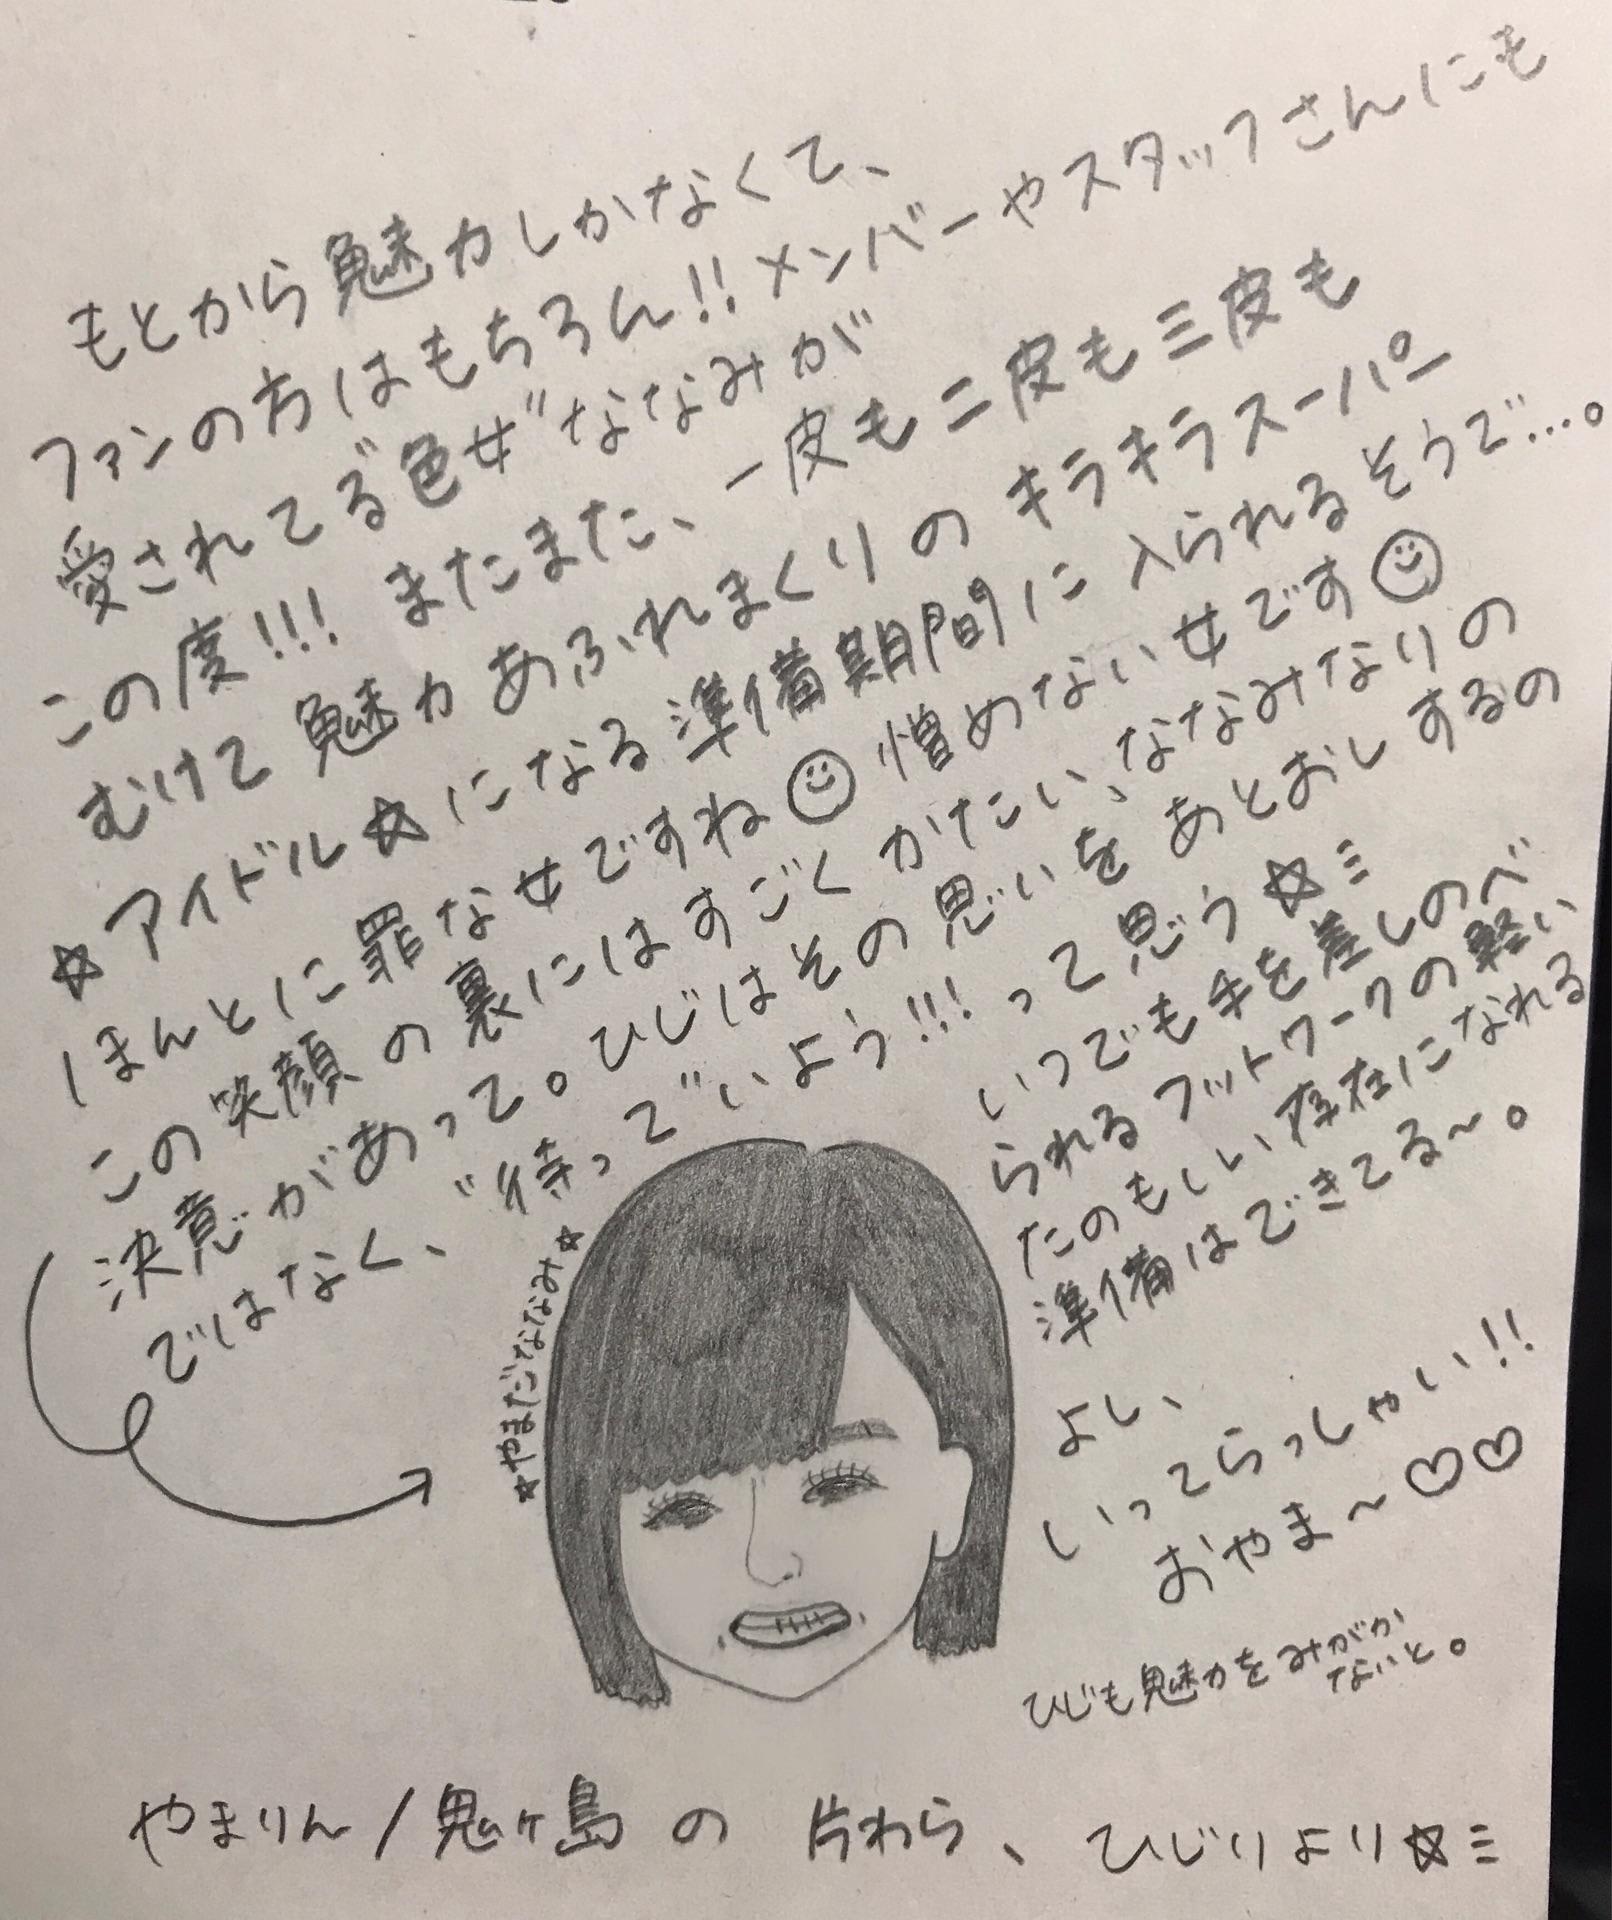 もとから魅力しかなくて、
ファンの方はもちろん!!メンバーやスタッフさんにも
愛されてる"色女"ななみが
この度!!! またまた、一皮も二皮も三皮も
むけて魅力あふれまくりのキラキラスーパー
☆アイドル☆になる準備期間に入られるそうで…。
ほんとに罪な女ですね☺憎めない女です☺
この笑顔の裏にはすごくかたい、ななみなりの
決意があって。ひじはその思いをあとおしするの
ではなく、"待って"いよう!!!って思う☆ミ
いつでも手を差しのべ
られるフットワークの軽い
たのもしい存在になれる
準備はできてる〜。
よし、
いってらっしゃい!!
おやま〜♡♡
ひじも魅力をみがか
ないと。
☆やまだななみ☆
やまりん/鬼ヶ島の片わら、ひじりより☆ミ